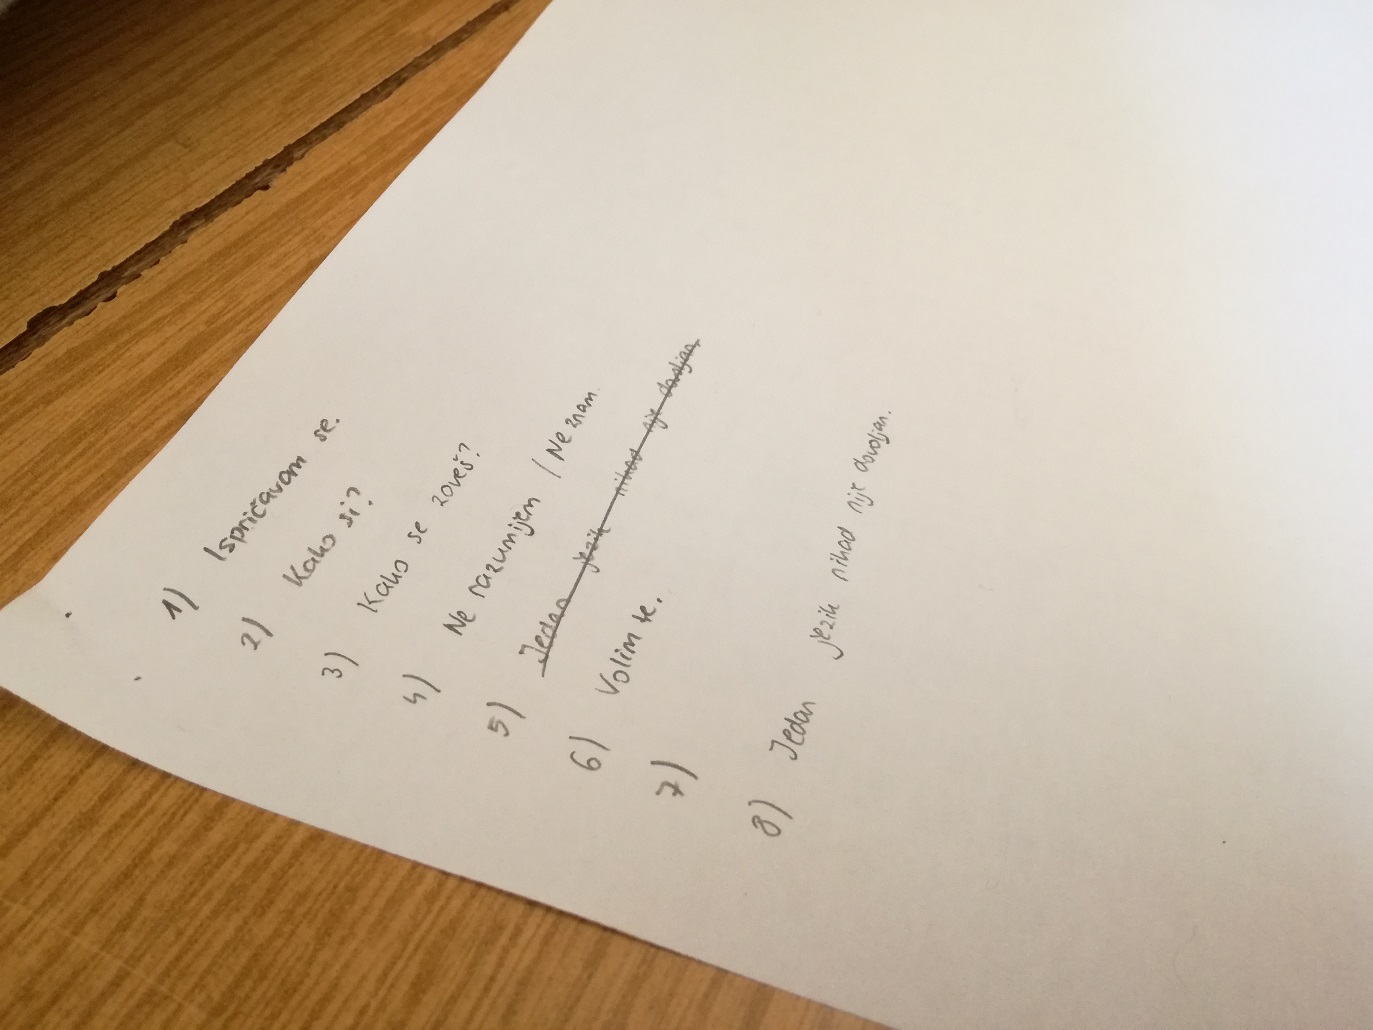 1) Ispričavam se.
2) Kako si?
3) Kako se zoveš?
4) Ne razumijem / Ne znam.
5) Jedan jezik nikad nije dovoljan.
6) Volim te.
7)
8) Jedan jezik nikad nije dovoljan.